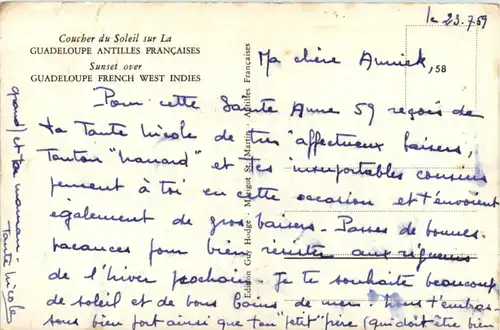 Coucher du Soleil sur La
GUADELOUPE ANTILLES FRANÇAISES
Sunset over
GUADELOUPE FRENCH WEST INDIES
le 23.7.59
Ma chère Annick,
58
Pour cette Sainte Anne 59 reçois de
ta Tante Nicole de très affectueux baisers,
Tonton "Nanard" et tes insupportables cousins
pensent à toi en cette occasion et t'envoient
également de gros baisers - Passes de bonnes
vacances pour bien résister aux rigueurs
de l'hiver prochain. Je te souhaite beaucoup
de soleil et de bons bains de mer. Nous t'embras-
sons bien fort ainsi que ton "petit" père (qui doit être bien
grand) et ta maman -
Tante Nicole
Edition Guy Hodge - Marigot St. Martin - Antilles Françaises